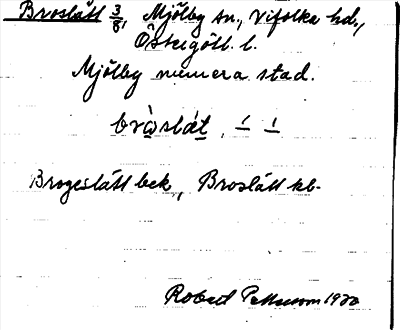 Broslätt 3/8, Mjölby sn., Vifolka hd.,
Östergötl. l.
Mjölby numera stad.
bròslæt, ´ ´
Brogeslätt bek, Broslätt kb.
Robert Pettersson 1920